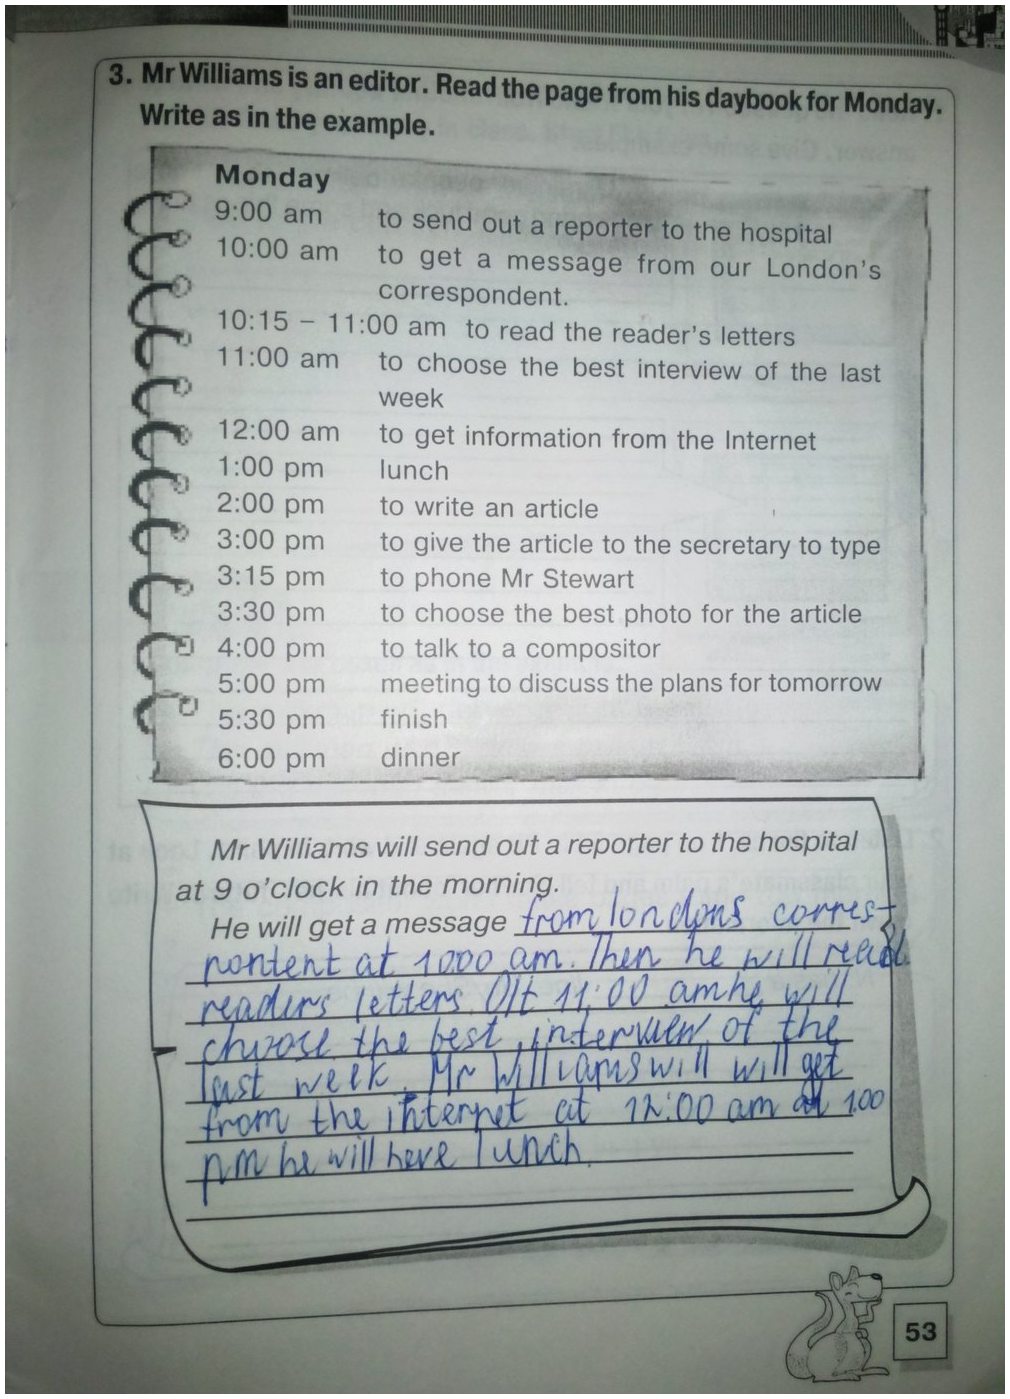 3. Mr Williams is an editor. Read the page from his daybook for Monday.
Write as in the example.
Monday
9:00 am to send out a reporter to the hospital
10:00 am to get a message from our London's
correspondent.
10:15 – 11:00 am to read the reader's letters
11:00 am to choose the best interview of the last
week
12:00 am to get information from the Internet
1:00 pm lunch
2:00 pm to write an article
3:00 pm to give the article to the secretary to type
3:15 pm to phone Mr Stewart
3:30 pm to choose the best photo for the article
4:00 pm to talk to a compositor
5:00 pm meeting to discuss the plans for tomorrow
5:30 pm finish
6:00 pm dinner
Mr Williams will send out a reporter to the hospital
at 9 o'clock in the morning.
He will get a message from londons corres-
pontent at 10 00 am. Then he will read
readers letters. At 11:00 am he will
choose the best interview of the
last week. Mr Williams will will get
from the internet at 12:00 am at 1.00
pm he will here lunch.
53